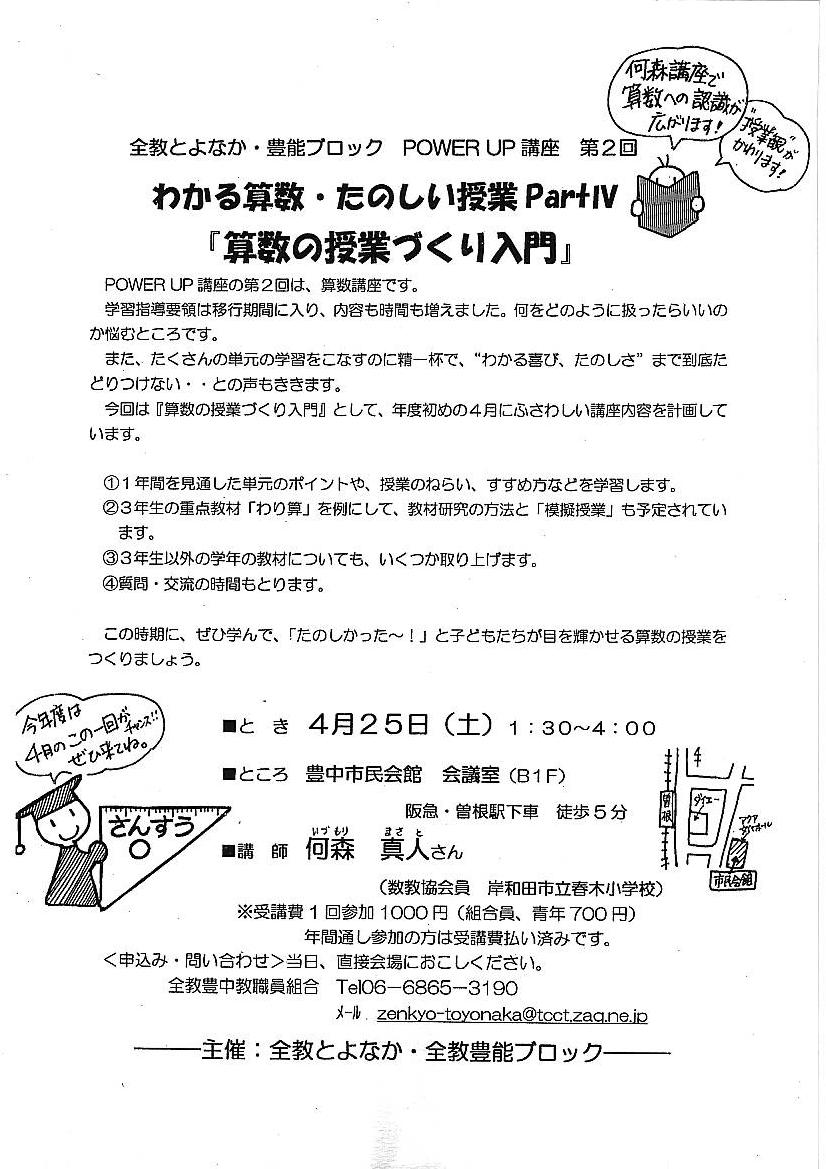 何森講座で
算数への認識が
広がります!
"授業観"が
かわります!
全教とよなか・豊能ブロック POWER UP 講座 第2回
わかる算数・たのしい授業 PartⅣ
『算数の授業づくり入門』
POWER UP 講座の第2回は、算数講座です。
学習指導要領は移行期間に入り、内容も時間も増えました。何をどのように扱ったらいいの
か悩むところです。
また、たくさんの単元の学習をこなすのに精一杯で、“わかる喜び、たのしさ”まで到底た
どりつけない・・との声もききます。
今回は『算数の授業づくり入門』として、年度初めの4月にふさわしい講座内容を計画して
います。
①1年間を見通した単元のポイントや、授業のねらい、すすめ方などを学習します。
②3年生の重点教材「わり算」を例にして、教材研究の方法と「模擬授業」も予定されてい
ます。
③3年生以外の学年の教材についても、いくつか取り上げます。
④質問・交流の時間もとります。
この時期に、ぜひ学んで、「たのしかった~!」と子どもたちが目を輝かせる算数の授業を
つくりましょう。
今年度は
4月のこの一回が
チャンス!!
ぜひ来てね。
さんすう
■と き 4月25日(土) 1:30~4:00
■ところ 豊中市民会館 会議室(B1F)
阪急・曽根駅下車 徒歩5分
■講 師 何森 真人さん
いづもり まさ と
(数教協会員 岸和田市立春木小学校)
曽根
ダイエー
アクア
市民会館
※受講費1回参加1000円(組合員、青年700円)
年間通し参加の方は受講費払い済みです。
<申込み・問い合わせ>当日、直接会場におこしください。
全教豊中教職員組合 Tel06-6865-3190
メール zenkyo-toyonaka@tcct.zaq.ne.jp
主催:全教とよなか・全教豊能ブロック